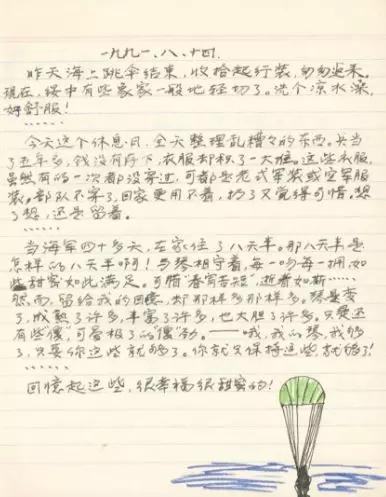 一九九一.八.十四.
昨天海上跳伞结束,收拾起行装,匆匆返来。
现在,绥中有些象家一般地轻切了。洗个凉水澡,
好舒服!
……
今天这个休息日,全天整理乱糟々的东西。兵当
了五年多,钱没有存下,衣服却积了一大堆。这些衣服,
虽然有的一次都没穿过,可都是老式军装或空军服
装。部队不穿了,回家更用不着,扔了又觉得可惜,想
了想,还是留着。
……
当海军四十多天,在家住了八天半。那八天半是
怎样的八天半啊!与琴相守着,每一吻每一拥如
此甜蜜如此满足。可惜"春宵苦短",逝者如斯……
然而,留给我的回忆,却那样多那样多。琴是变
了,成熟了许多,丰富了许多,也大胆了许多。只是还
有些"傻",可爱极了的"傻"劲。——哦,我的琴,我够
了,只要你这些就够了。你就只保持这些,就够了!
……
回忆起这些,很幸福很甜蜜的!